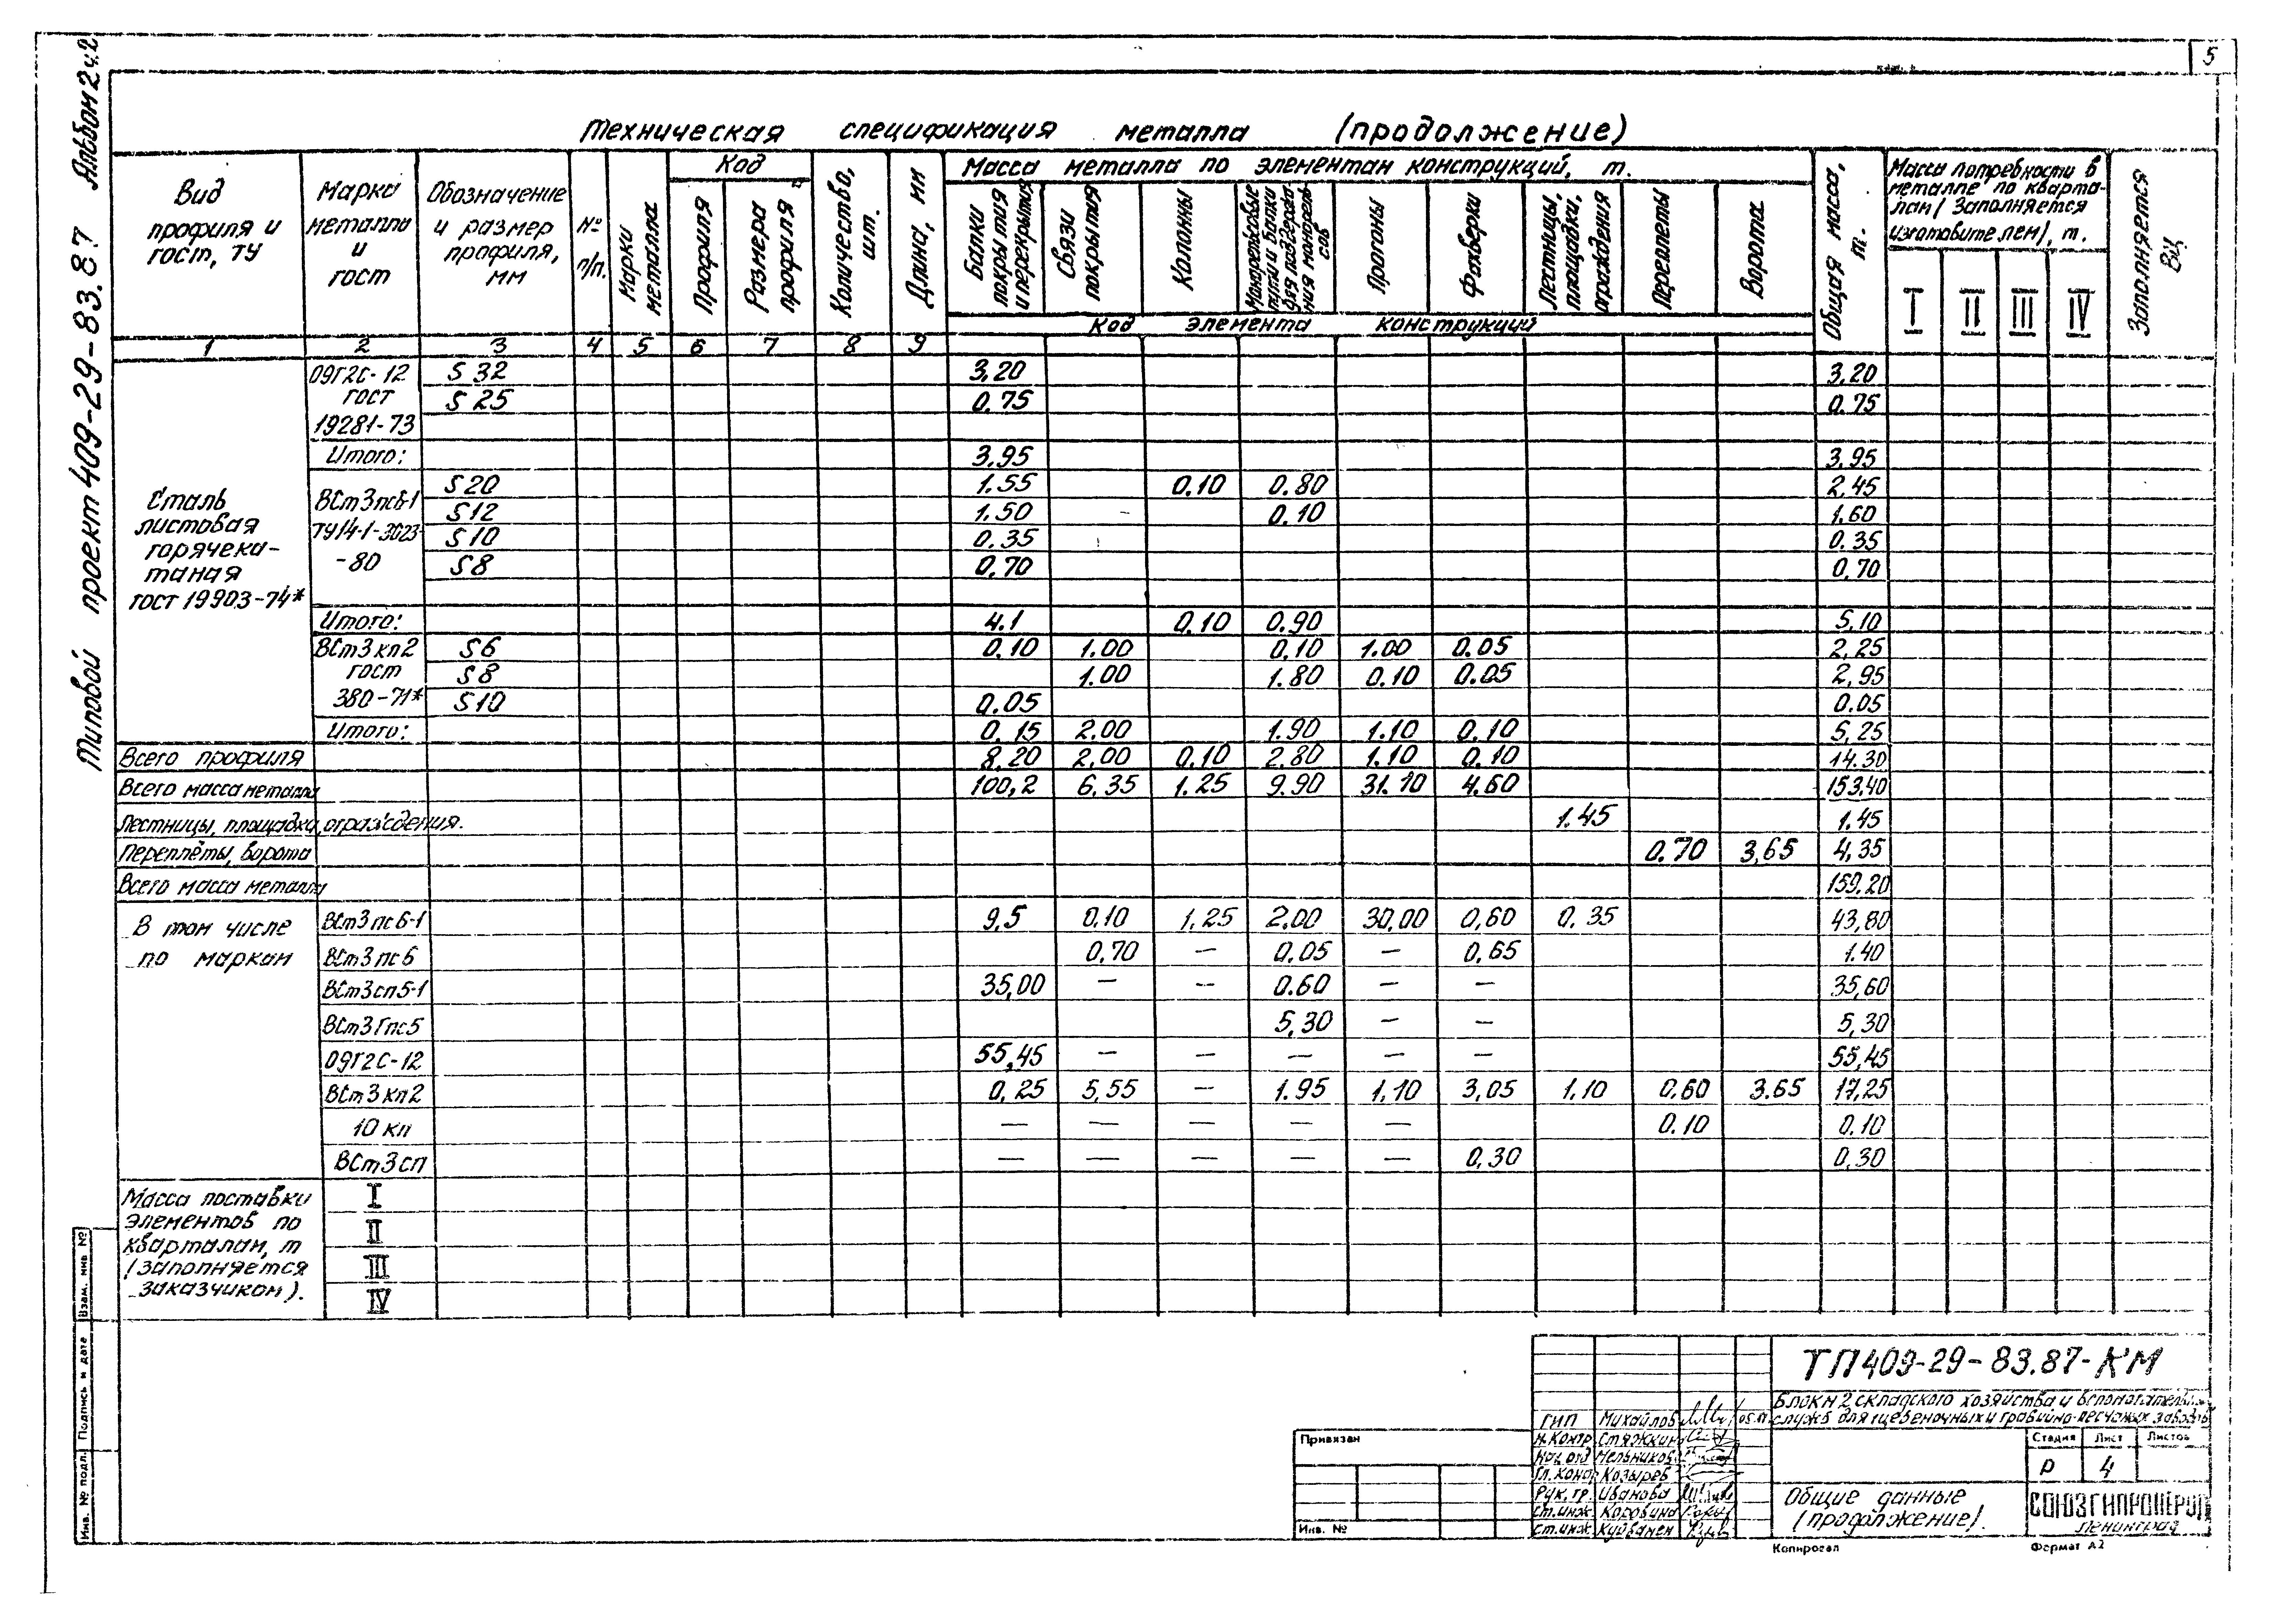 5
Типовой проект 409-29-83.87 Альбом 2 ч.2
Техническая спецификация металла (продолжение)
Вид профиля и гост, ТУ
Марка металла и гост
Обозначение и размер профиля, мм
№ п/п.
Марки металла
Код
Профиля
Размера профиля
Количество, шт.
Длина, мм
Масса металла по элементам конструкций, т.
Балки покрытия и перекрытия
Связи покрытия
Колонны
Прогоны
Фахверки
Лестницы, площадки, ограждения
Переплеты
Ворота
Общая масса, т.
Масса потребности в металле по кварталам (Заполняется изготовителем), т.
I II III IV
Заполняется ВЦ
Код элемента конструкций
1 2 3 4 5 6 7 8 9
Сталь листовая горячекатаная гост 19903-74*
09Г2С-12 гост 19281-73
S 32 3,20 3,20
S 25 0.75 0.75
Итого: 3,95 3,95
ВСт3пс6-1 ТУ14-1-3023-80
S 20 1.55 0.10 0.80 2,45
S 12 1.50 0.10 1.60
S 10 0.35 0.35
S 8 0,70 0,70
Итого: 4.1 0.10 0.90 5,10
ВСт3кп2 гост 380-71*
S 6 0,10 1.00 0,10 1.00 0.05 2,25
S 8 1.00 1.80 0,10 0.05 2,95
S 10 0.05 0.05
Итого: 0,15 2,00 1.90 1.10 0,10 5,25
Всего профиля 8.20 2,00 0,10 2,80 1.10 0.10 14.30
Всего масса металла 100,2 6,35 1.25 9.90 31.10 4.60 153,40
Лестницы, площадки, ограждения. 1.45 1.45
Переплёты, ворота 0.70 3,65 4,35
Всего масса металла 159,20
В том числе по маркам
ВСт3пс6-1 9,5 0,10 1,25 2,00 30,00 0,60 0,35 43,80
ВСт3пс6 0,70 — 0,05 — 0,65 1.40
ВСт3сп5-1 35,00 — — 0.60 — — 35,60
ВСт3Гпс5 5,30 — — 5,30
09Г2С-12 55,45 — — — — — 55,45
ВСт3кп2 0,25 5,55 — 1.95 1,10 3,05 1,10 0,60 3.65 17,25
10 кп — — — — — 0.10 0,10
ВСт3сп — — — — — 0,30 0,30
Масса поставки элементов по кварталам, т (заполняется заказчиком).
I
II
III
IV
Взам. инв. №
Подпись и дата
Инв. № подл.
Привязан
Инв. №
ТП409-29-83.87-КМ
Блок N2 складского хозяйства и вспомогательных
служб для щебеночных и гравийно-песчаных заводов
ГИП Михайлов
Н.контр Стяжкин
Нач.отд Мельников
Гл. конс. Козырев
Рук.гр. Иванова
Ст.инж. Коровина
Ст.инж
Стадия Лист Листов
Р 4
Общие данные
(продолжение).
СОЮЗГИПРОНЕРУД
Ленинград
Копировал
Формат А2